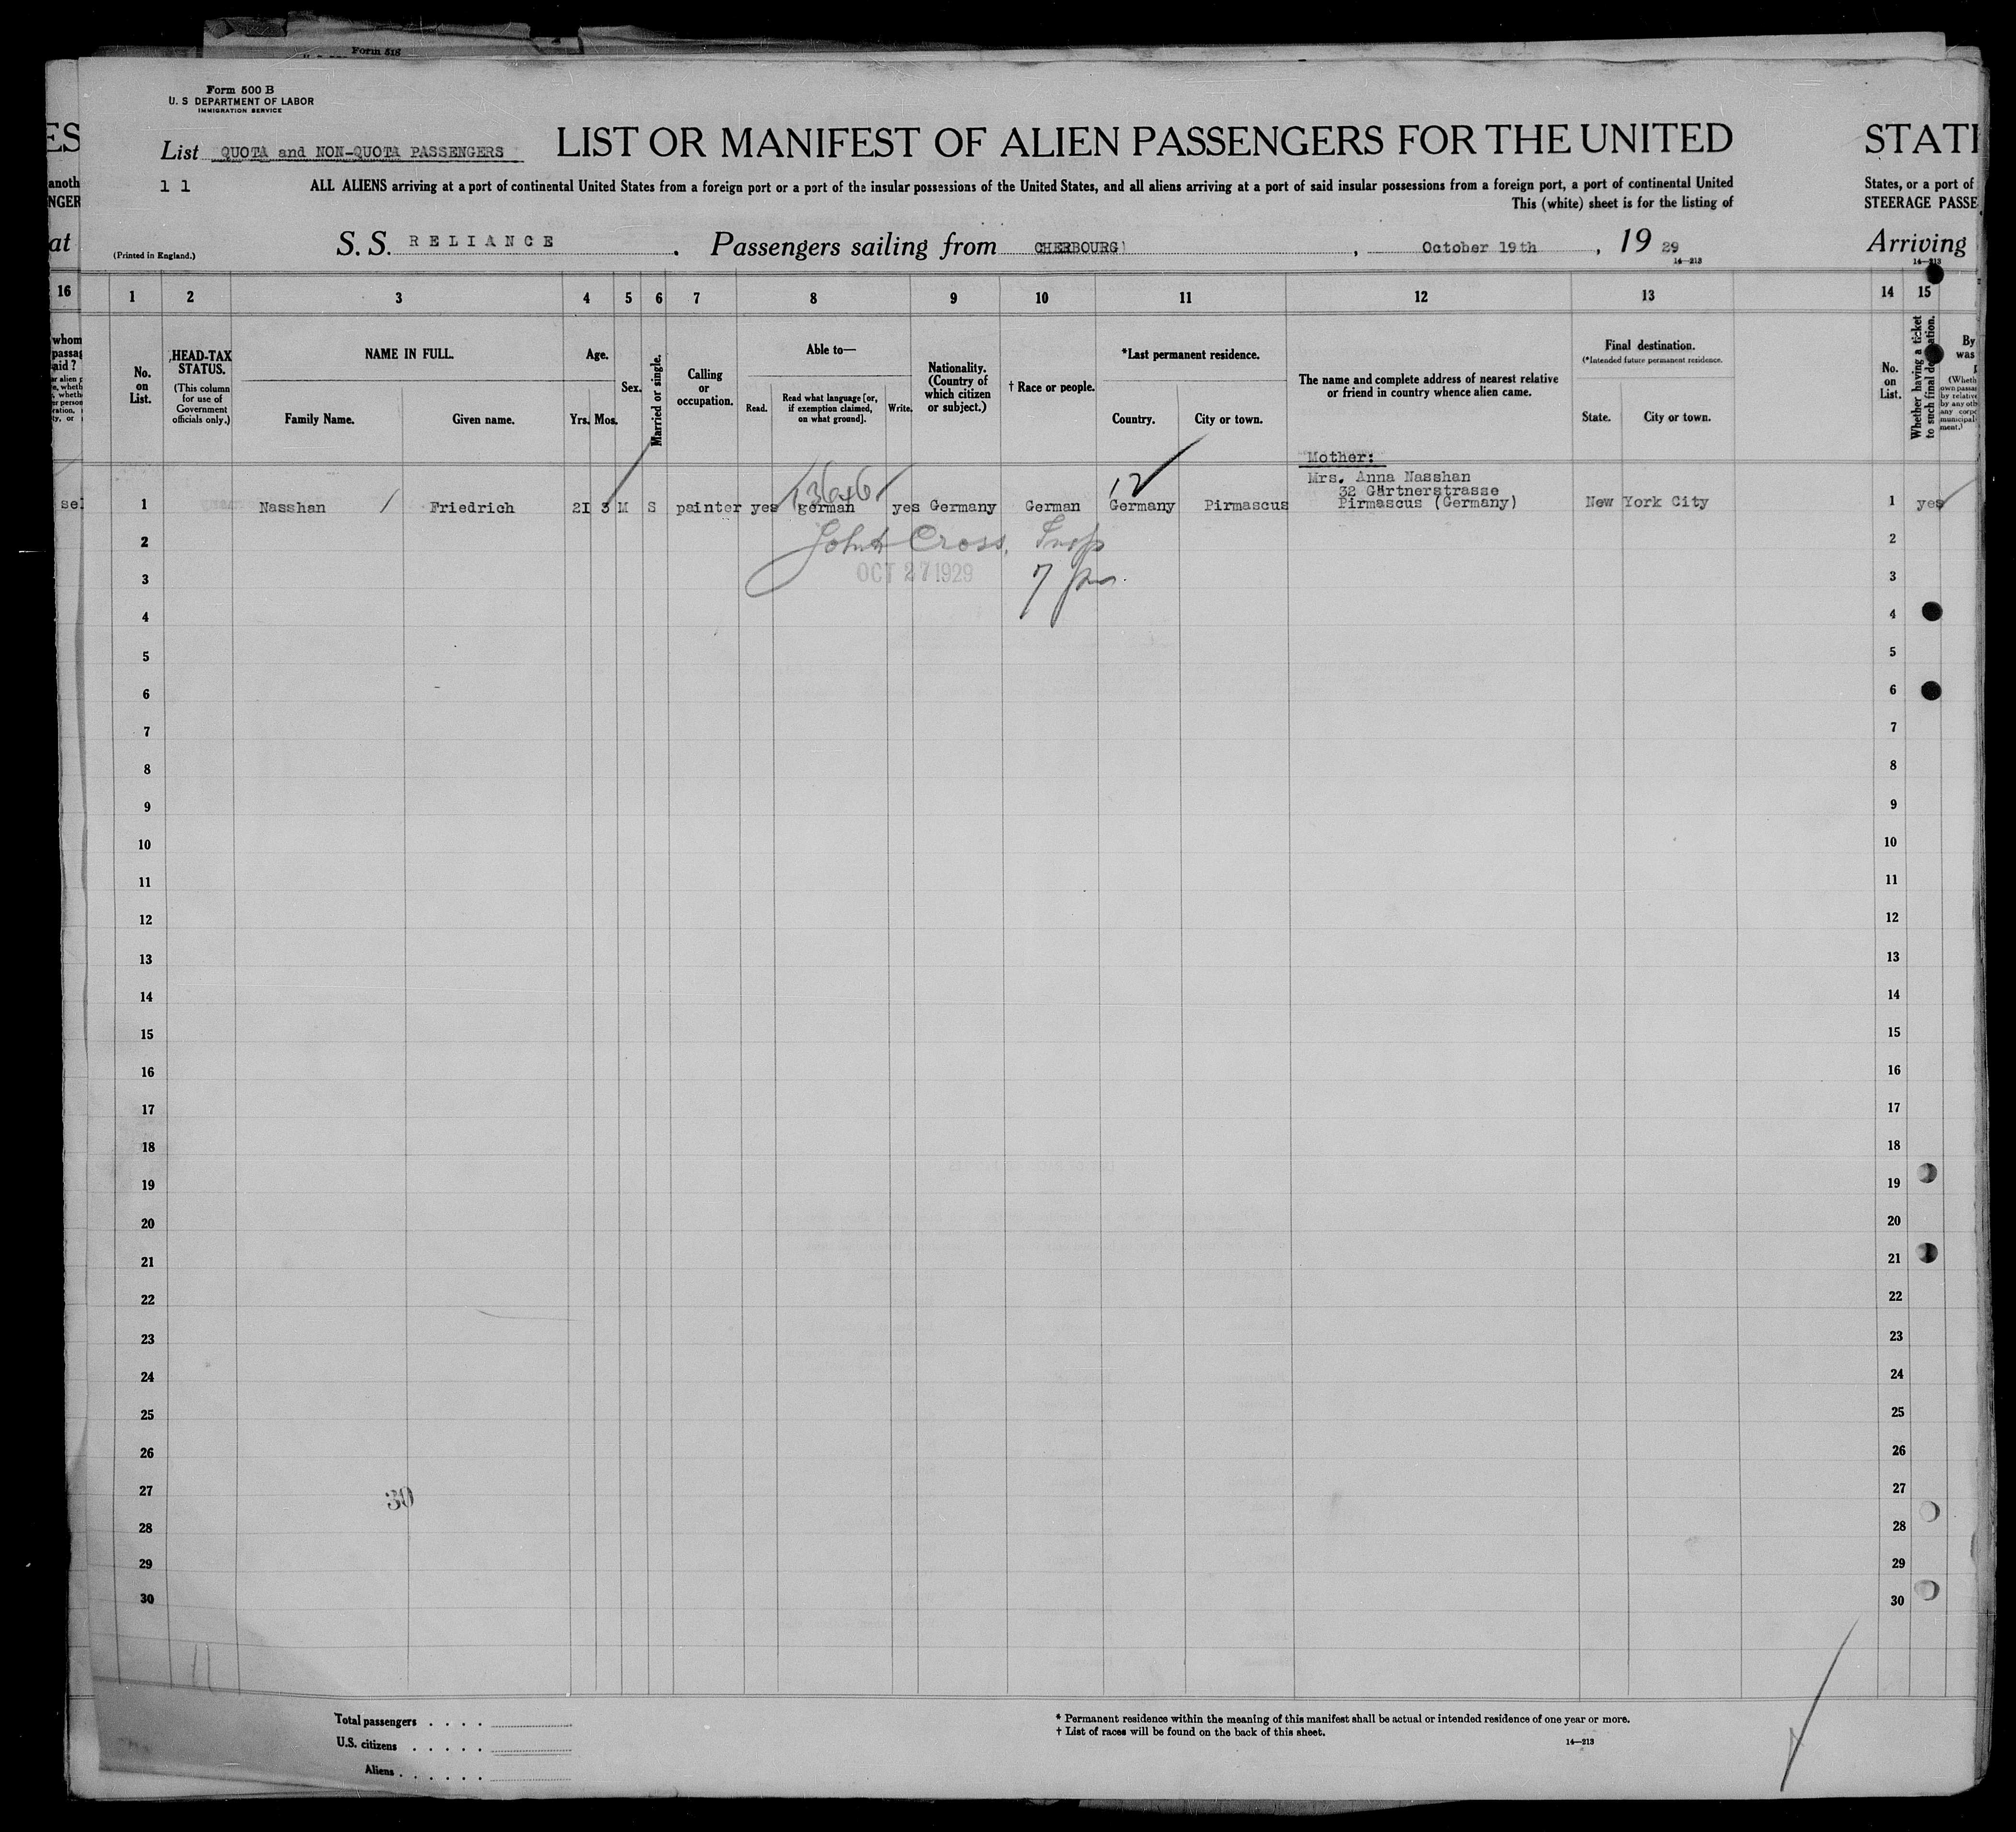 Form 518
Form 500 B
U. S DEPARTMENT OF LABOR
IMMIGRATION SERVICE
ES
List QUOTA and NON-QUOTA PASSENGERS
LIST OR MANIFEST OF ALIEN PASSENGERS FOR THE UNITED
STATE
anoth
NGER
1 1
ALL ALIENS arriving at a port of continental United States from a foreign port or a port of the insular possessions of the United States, and all aliens arriving at a port of said insular possessions from a foreign port, a port of continental United
This (white) sheet is for the listing of
States, or a port of
STEERAGE PASSE
at
(Printed in England.)
S. S. RELIANCE. Passengers sailing from CHERBOURG, October 19th, 19 29
14—213
Arriving
14—213
16 1 2 3 4 5 6 7 8 9 10 11 12 13 14 15
whom
passag
aid ?
No.
on
List.
HEAD-TAX
STATUS.
(This column
for use of
Government
officials only.)
NAME IN FULL.
Family Name.
Given name.
Age.
Yrs. Mos.
Sex.
Married or single.
Calling
or
occupation.
Able to—
Read.
Read what language [or,
if exemption claimed,
on what ground].
Write.
Nationality.
(Country of
which citizen
or subject.)
† Race or people.
*Last permanent residence.
Country.
City or town.
The name and complete address of nearest relative
or friend in country whence alien came.
Final destination.
(*Intended future permanent residence.
State.
City or town.
No.
on
List.
Whether having a ticket
to such final destination.
By
was
(Wheth
own passa
by relative
by any oth
any corpo
municipal
ment.)
Mother:
Mrs. Anna Nasshan
32 Gärtnerstrasse
Pirmascus (Germany)
12
sel
1 Nasshan / Friedrich 21 3 M S painter yes german yes Germany German Germany Pirmascus New York City 1 yes
John Cross, Insp
OCT 27 1929
2 2
3 3
4 4
5 5
6 6
7 7
8 8
9 9
10 10
11 11
12 12
13 13
14 14
15 15
16 16
17 17
18 18
19 19
20 20
21 21
22 22
23 23
24 24
25 25
26 26
27 27
30
28 28
29 29
30 30
11
Total passengers . . . .
U.S. citizens . . . . .
Aliens . . . . . .
* Permanent residence within the meaning of this manifest shall be actual or intended residence of one year or more.
† List of races will be found on the back of this sheet.
14—213